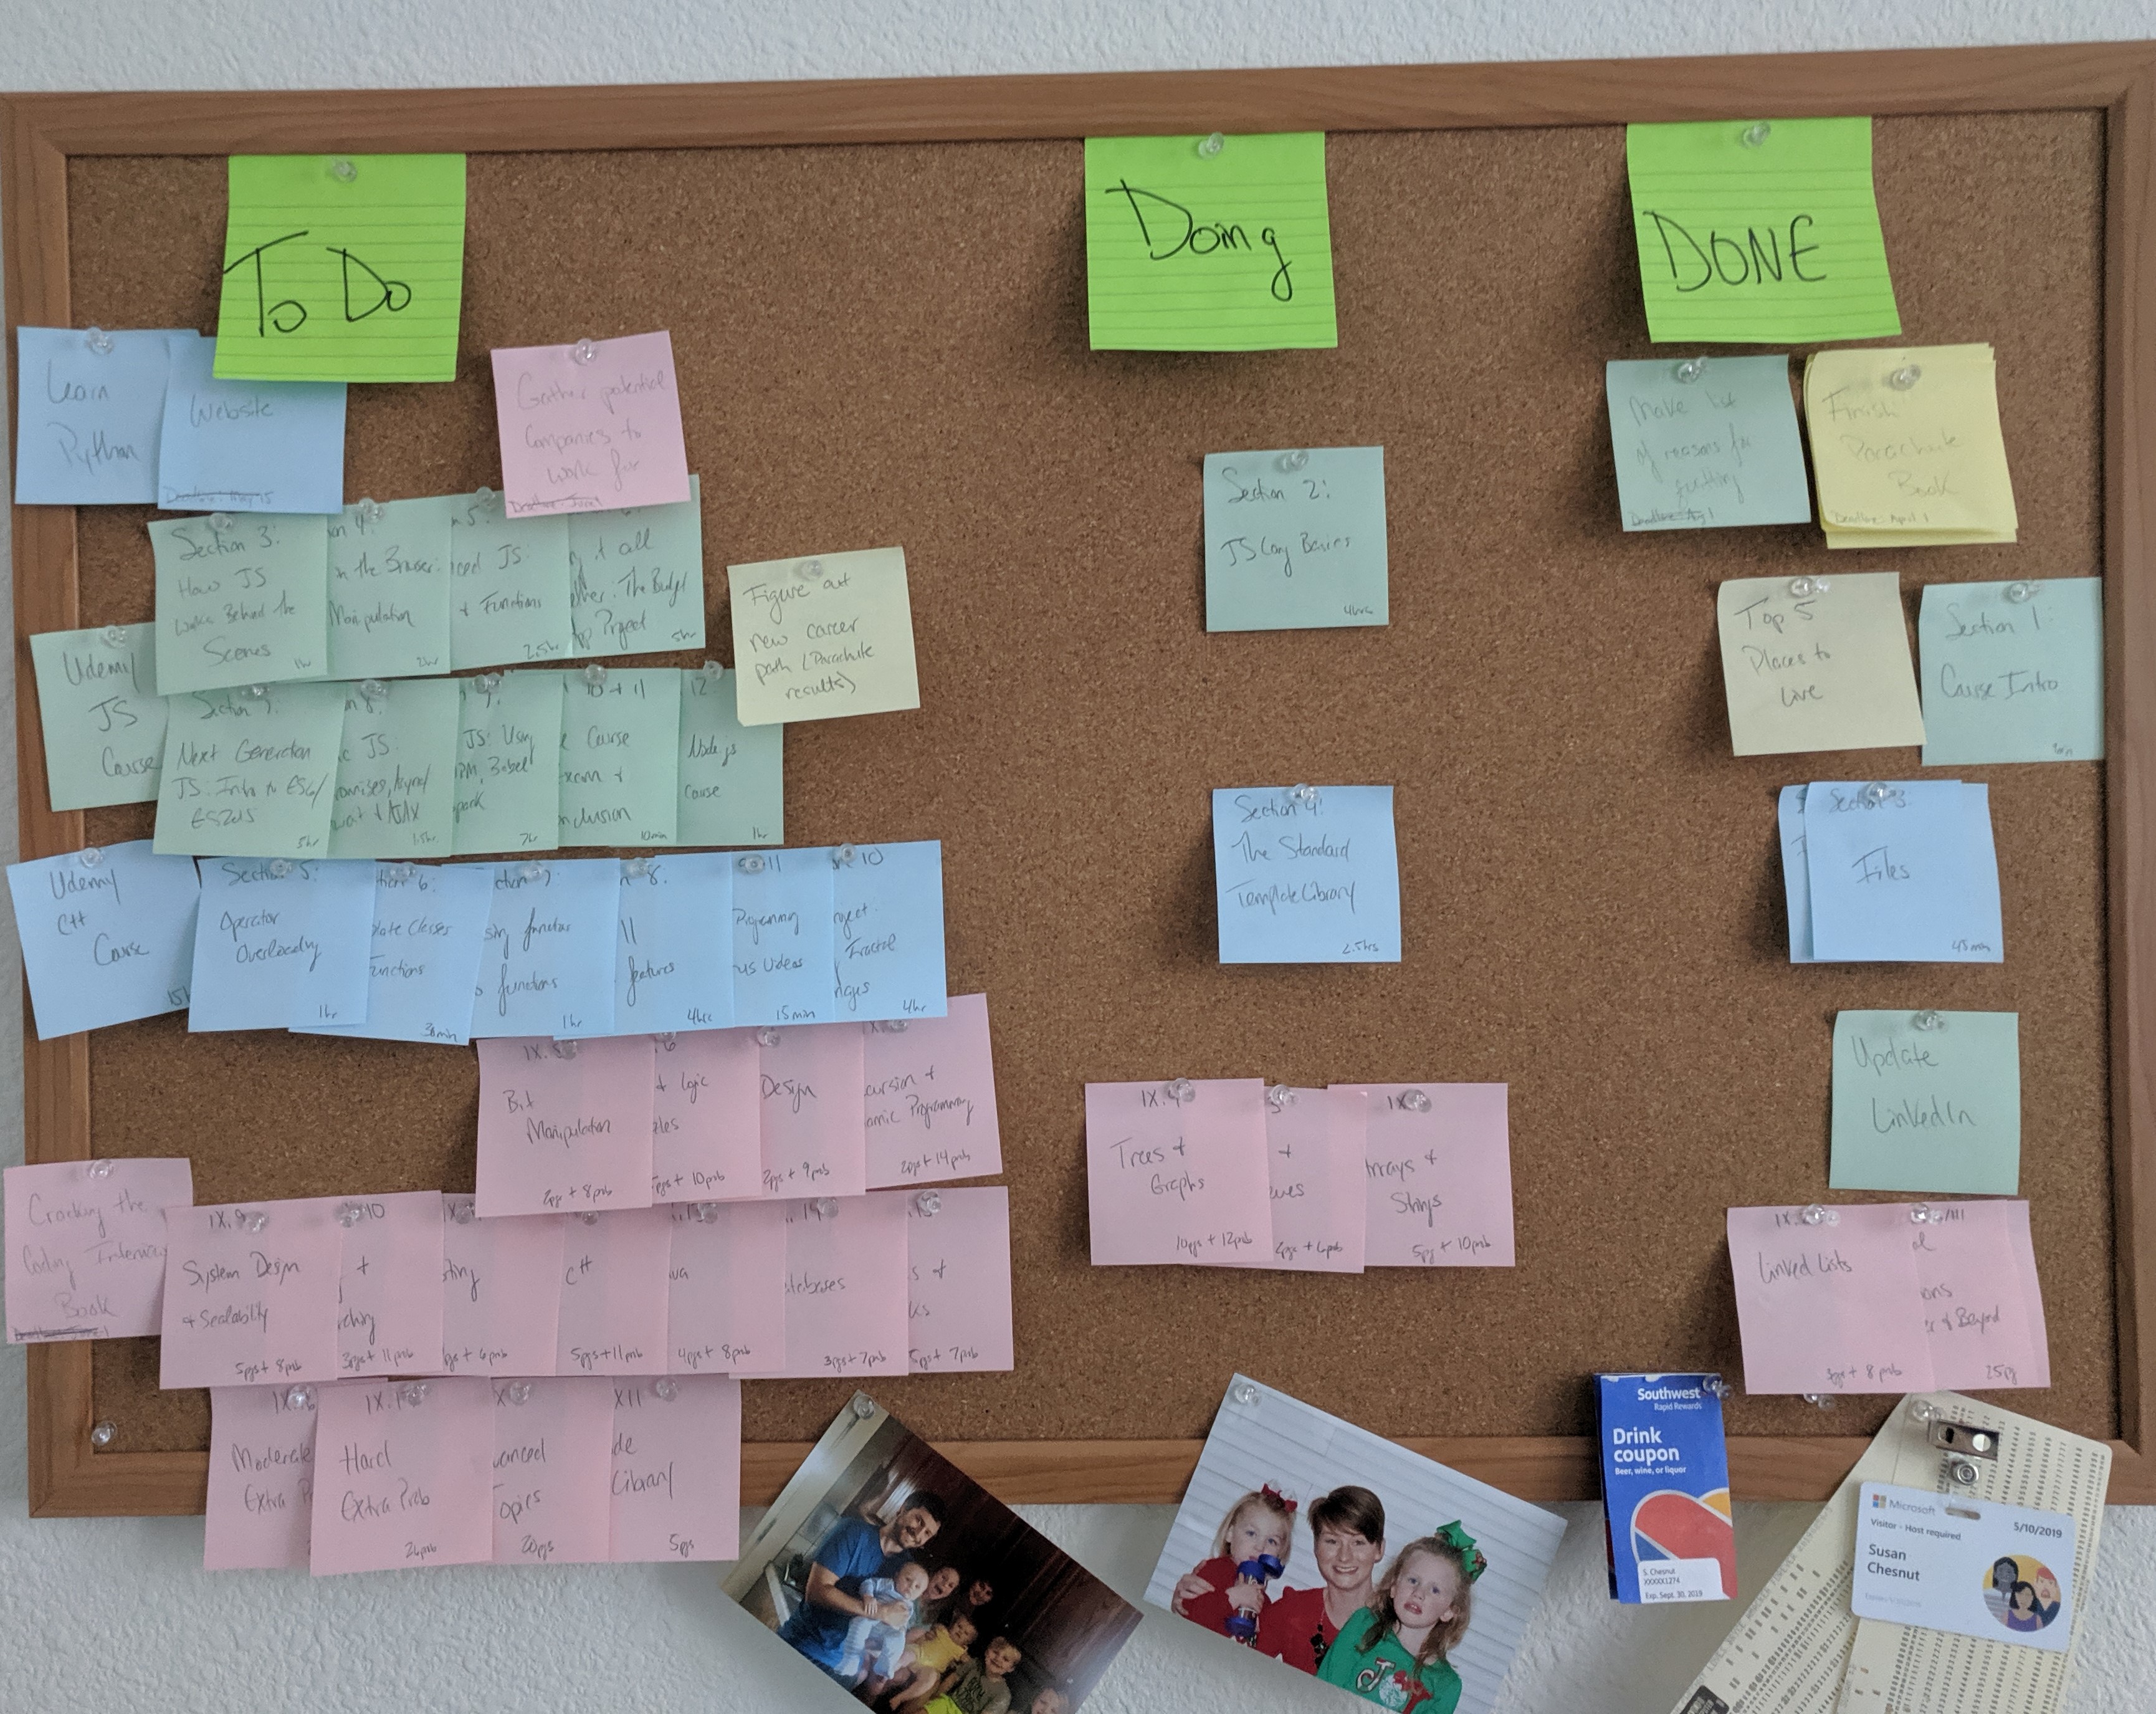 To Do
Doing
DONE
Learn
Python
Website
Deadline: May 15
Gather potential
Companies to
work for
Section 3:
How JS
Works Behind the
Scenes
1hr
on 4:
in the Browser:
Manipulation
2hr
n 5:
ced JS:
+ Functions
2.5hr
6:
g it all
ther: The Budget
pp Project
5hr
Figure out
new career
path (Parachute
results)
Udemy
JS
Course
Section 7:
Next Generation
JS: Intro to ES6/
ES2015
5hr
n 8:
c JS:
omises, Async/
wait & AJAX
1.5hr
9:
JS: Using
PM, Babel
pack
10 + 11
e Course
nclusion
10min
12
Node.js
Course
1hr
Udemy
C++
Course
15h
Section 5:
Operator
Overloading
1hr
tion 6:
plate Classes
Functions
30min
ction 7:
sing functions
o functions
1hr
n 8:
11
features
4hrs
11
Programming
us Videos
15min
10
roject:
Fractal
ages
4hr
IX.5
Bit
Manipulation
2pgs + 8prob
6
d logic
zles
pgs + 10prob
Design
2pgs + 9prob
IX.
cursion +
amic Programming
2pgs + 14prob
Cracking the
Coding Interview
Book
IX.9
System Design
+ Scalability
5pgs + 8prob
10
+
rching
3pgs + 11prob
IX.
sting
pgs + 6prob
C++
5pgs + 11prob
13
va
4pgs + 8prob
14
tabases
3pgs + 7prob
15
s +
ks
5pgs + 7prob
IX.16
Moderate
Extra P
IX.17
Hard
Extra Prob
26prob
X
vanced
Topics
20pgs
XII
de
Library
5pgs
Section 2:
JS Lang Basics
4hrs
Section 4:
The Standard
Template Library
2.5hrs
IX.4
Trees +
Graphs
10pgs + 12prob
3
+
ues
2pgs + 6prob
IX.
Arrays +
Strings
5pg + 10prob
Make list
of reasons for
quitting
Finish
Parachute
Book
Deadline: April 1
Top 5
Places to
Live
Section 1:
Course Intro
Section 3:
Files
45min
Update
LinkedIn
IX.2
Linked Lists
3pgs + 8prob
/III
al
ons
r & Beyond
25pg
Southwest
Rapid Rewards
Drink
coupon
Beer, wine, or liquor
S. Chesnut
XXXXX1274
Exp. Sept. 30, 2019
Microsoft
Visitor - Host required
5/10/2019
Susan
Chesnut
JO